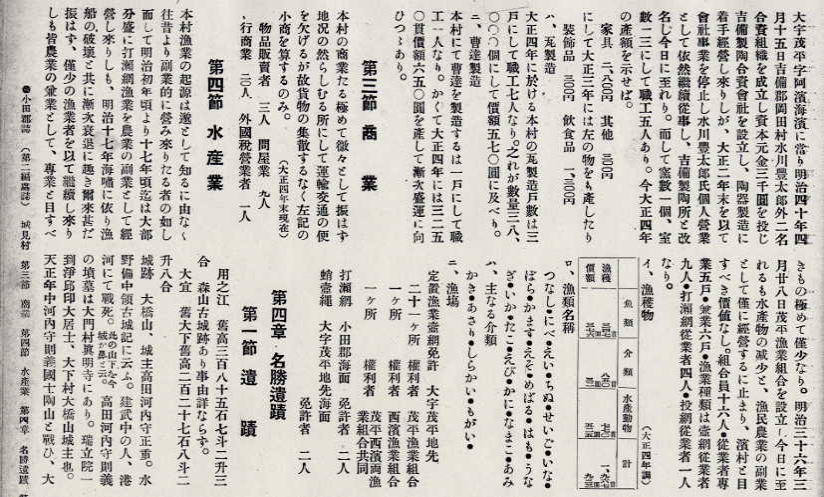 大字茂平字阿濱海濱に當り明治四十年四
月十五日吉備郡岡田村水川豊太郎外二名
合資組織を成立し資本元金三千圓を投じ
吉備製陶合資會社を設立し、陶器製造に
着手經營し來りしが、大正二年末を以て
會社事業を停止し水川豊太郎氏個人營業
として依然繼續從事し、吉備製陶所と改
名し今日に至れり。而して窯數一個、室
數一二にして職工五人あり。今大正四年
の產額を示せば。
家具 二、八〇〇圓 其他 三〇圓
にして大正三年には左の物をも產したり
裝飾品 三〇〇圓 飲食品 一、三〇〇圓
ハ、瓦製造
大正四年に於ける本村の瓦製造戸數は三
戸にして職工七人なり。之れが數量三八、
〇〇〇個にして價額五七〇圓に及べり。
ニ、曹達製造
本村にて曹達を製造するは一戸にして職
工一人なり。かくて大正四年には三二五
〇貫價額六五〇圓を產して漸次盛運に向
ひつゝあり。
第三節 商業
本村の商業たる極めて微々として振はず
地況の然らしむる所にして運輸交通の便
を欠げるが故貨物の集散するなく左記の
小商を算するのみ。 (大正四年末現在)
物品販賣者 三人 問屋業 九人
行商業 三〇人 外國税營業者 一人
第四節 水產業
本村漁業の起源は邈として知るに由なく
往昔より副業的に營み來りたる者の如し
而して明治初年頃より十七年頃迄は大部
分盛に打瀬網漁業を農業の副業として經
營し來りしも、明治十七年海嘯に依り漁
船の破壞と共に漸次衰退に趣き爾來甚だ
振はず、僅少の漁業者を以て繼續し來り
しも皆農業の兼業として、專業と目すべ
きもの極めて僅少なり。明治三十六年三
月廿八日茂平漁業組合を設立し今日に至
れるも水產物の減少と、漁民農業の副業
として僅に經營するに止まり、濱村と目
すべき價値なし。組合員十六人●從業者專
業五戸●兼業六戸●漁業種類は壷網從業者
九人●打瀬網從業者四人●投網從業者一人
なり。
イ、漁獲物 (大正四年調)
魚類 介類 水產動物 計
漁獲
價額
ロ、漁類名稱
つなし●にべ●えい●ちぬ●せいご●いな●
ぼら●かます●えそ●めばる●はも●うな
ぎ●いか●たこ●えび●かに●なまこ●あみ
ハ、主なる介類
かき●あさり●しらがい●もがい●
ニ、漁場
定置漁業壷網免許 大字茂平地先
二十一ヶ所 權利者 茂平漁業組合
一ヶ所 權利者 西濱漁業組合
一ヶ所 權利者 茂平西濱両漁業組合共同
打瀬網 小田郡海面 免許者 二人
蛸壷繩 大字茂平地先海面
免許者 二人
第四章 名勝遺蹟
第一節 遺蹟
用之江 舊高三百八十五石七斗二升三
合 森山古城跡あり事由詳ならず。
大宜 舊大下舊高二百二十七石八斗二
升八合
城跡 大橋山、城主高田河内守正重。水
野備中領古城記に云ふ。建武中の人、港
河にて戰死。 高田河内守則義
の墳墓は大門村眞明寺にあり。瑞立院一
到淨邱印大居士、大下村大橋山城主也。
天正年中河内守則義國士陶山と戰ひ、大
●小田郡誌 (第二編鳥誌) 城見村 第三節 商業 第四節 水產業 第四章 名勝遺蹟